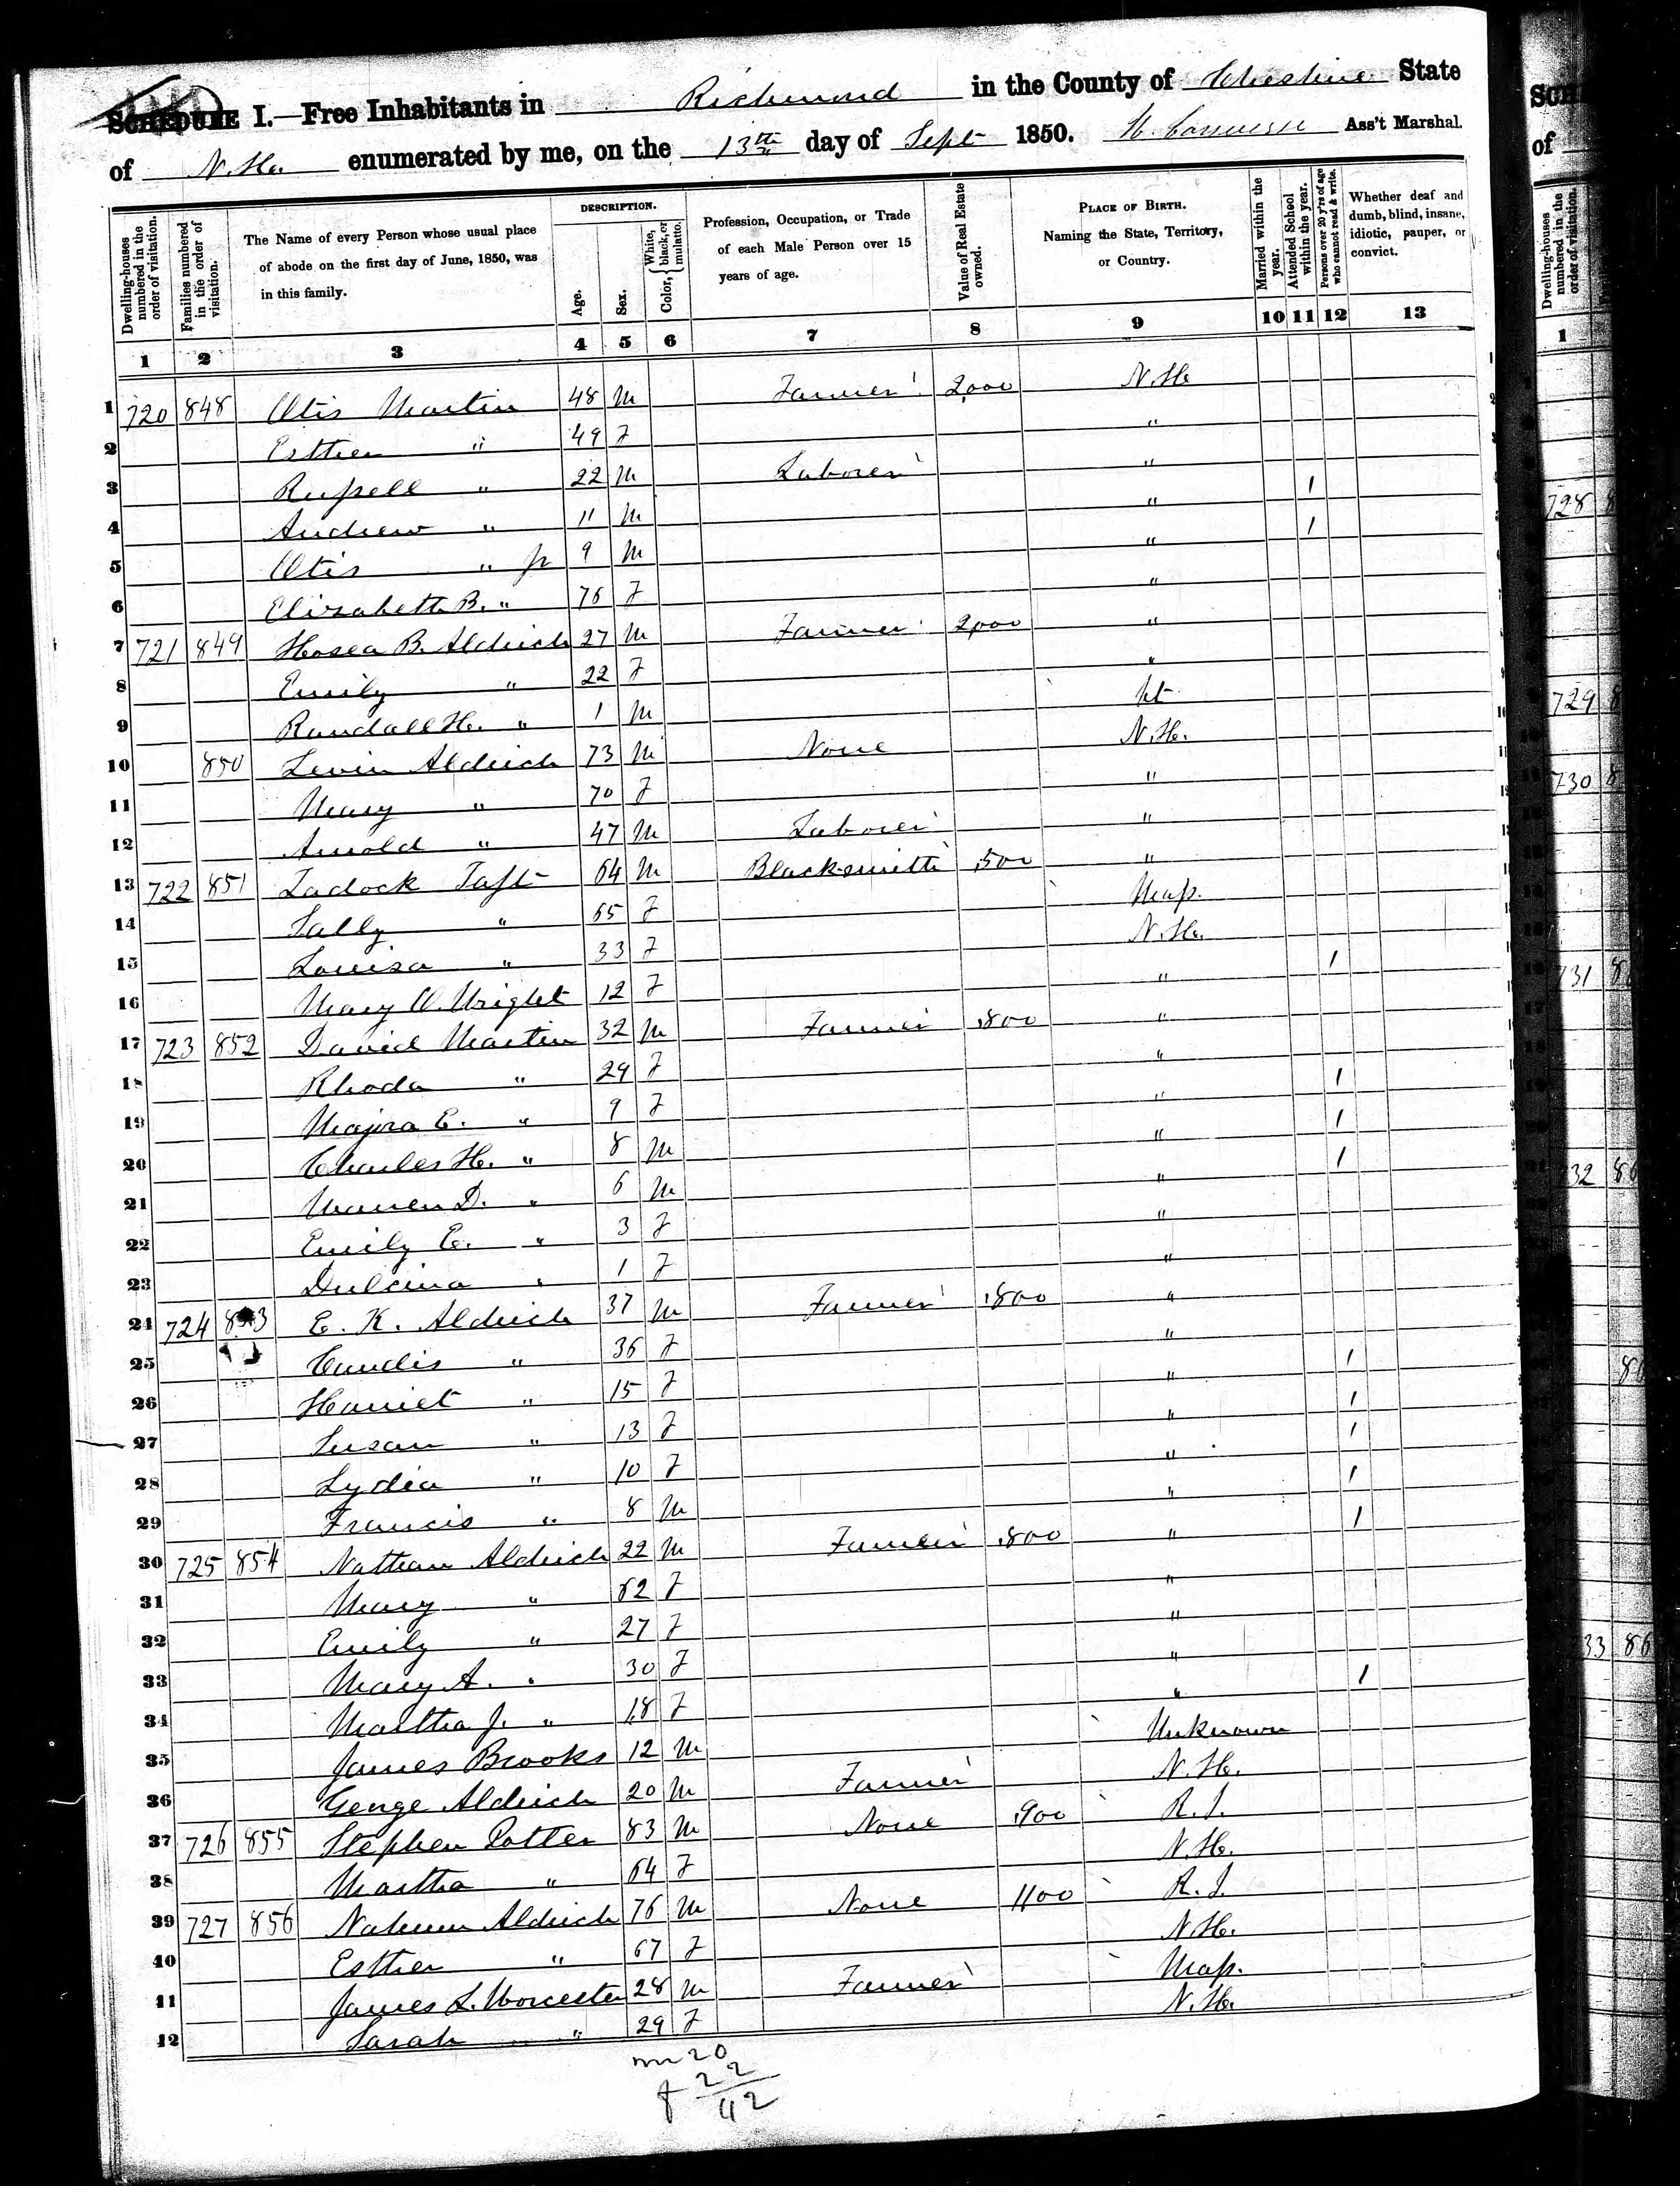 SCHEDULE I.—Free Inhabitants in Richmond in the County of Cheshire State
of N.H. enumerated by me, on the 13th day of Sept 1850. Ass't Marshal.
Dwelling-houses numbered in the order of visitation.
Families numbered in the order of visitation.
The Name of every Person whose usual place of abode on the first day of June, 1850, was in this family.
DESCRIPTION.
Age.
Sex.
Color, { White, black, or mulatto.
Profession, Occupation, or Trade of each Male Person over 15 years of age.
Value of Real Estate owned.
PLACE OF BIRTH. Naming the State, Territory, or Country.
Married within the year.
Attended School within the year.
Persons over 20 y'rs of age who cannot read & write.
Whether deaf and dumb, blind, insane, idiotic, pauper, or convict.
1 2 3 4 5 6 7 8 9 10 11 12 13
1 720 848 Otis Martin 48 M Farmer 2,000 N.H.
2 Esther " 49 F "
3 Russell " 22 M Laborer "
4 Andrew " 11 M " 1
5 Otis " Jr 9 M " 1
6 Elizabeth B. " 76 F "
7 721 849 Hosea B. Aldrich 27 M Farmer 2,000 "
8 Emily " 22 F "
9 Randall H. " 1 M Vt
10 850 Levin Aldrich 73 M None N.H.
11 Mary " 70 F "
12 Arnold " 47 M Laborer "
13 722 851 Zadock Taft 64 M Blacksmith 500 "
14 Sally " 65 F Mass.
15 Louisa " 33 F N.H.
16 Mary W. Wright 12 F " 1
17 723 852 David Martin 32 M Farmer 800 "
18 Rhoda " 29 F "
19 E. " 9 F " 1
20 Charles H. " 8 M " 1
21 Warren D. " 6 M " 1
22 Emily E. " 3 F "
23 Dulcina " 1 F "
24 724 853 E. K. Aldrich 37 M Farmer 800 "
25 Candis " 36 F "
26 Harriet " 15 F " 1
27 Susan " 13 F " 1
28 Lydia " 10 F " 1
29 Francis " 8 M " 1
30 725 854 Nathan Aldrich 22 M Farmer 800 " 1
31 Mary " 62 F "
32 Emily " 27 F "
33 Mary A. " 30 F "
34 Martha J. " 18 F " 1
35 James Brooks 12 M Unknown
36 George Aldrich 20 M Farmer N.H.
37 726 855 Stephen Potter 83 M None 900 R.I.
38 Martha " 64 F N.H.
39 727 856 Nahum Aldrich 76 M None 1100 R.I.
40 Esther " 67 F N.H.
41 James L. Worcester 28 M Farmer Mass.
42 Sarah " 29 F N.H.
m 20
f 22
42
SCH
of
Dwelling-houses numbered in the order of visitation.
1
728 8
729 8
730 8
731 8
732 86
86
33 86